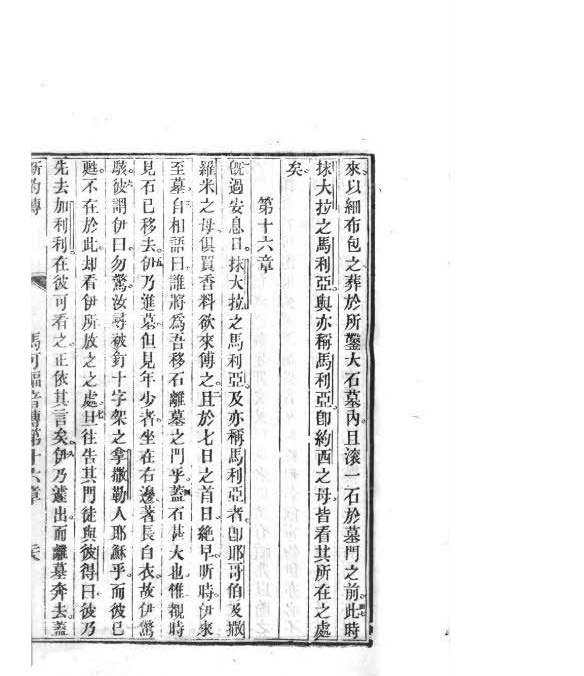 來以細布包之葬於所鑿大石墓內且滾一石於墓門之前。此時
抹大拉之馬利亞與亦稱馬利亞卽約西之母皆看其所在之處
矣。
第十六章
旣過安息日。抹大拉之馬利亞及亦稱馬利亞者。卽耶哥伯及撒
羅米之母俱買香料欲來傅之。且於七日之首日絕早昕時伊來
至墓。自相語曰誰將爲吾移石離墓之門乎。蓋石甚大也惟視時
見石已移去。伊乃進墓但見年少者坐在右邊著長白衣故伊驚
駭。彼謂伊曰。勿驚。汝尋被釘十字架之拿撒勒人耶穌乎。而彼已
甦不在於此。却看伊所放之之處。且往告其門徒與彼得曰彼乃
先去加利利在彼可看之。正依其言矣。伊乃遽出而離墓奔去。蓋
新約傳 馬可福音傳第十六章